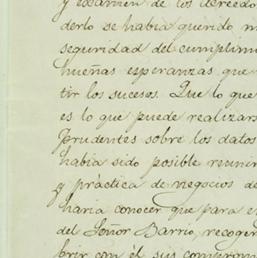 y examen de los
derlo se habia querido
seguridad del cumplim
hueñas esperanzas que
tir los sucesos. Que lo que
es lo que puede realizars
prudentes sobre los datos
habia sido posible reunir
y práctica de negocios de
haria conocer que para e
del Señor Barrio, recoger
brir con él sus comprom